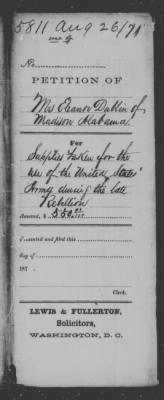 5811 Aug 26/71
No.
PETITION OF
Mrs Eleanor Dublin of
Madison Alabama
For
Supplies taken for the
use of the United States
Army during the late
Rebellion
Amount, $
Presented and filed this
day of
187
Clerk.
LEWIS & FULLERTON,
Solicitors,
WASHINGTON, D. C.